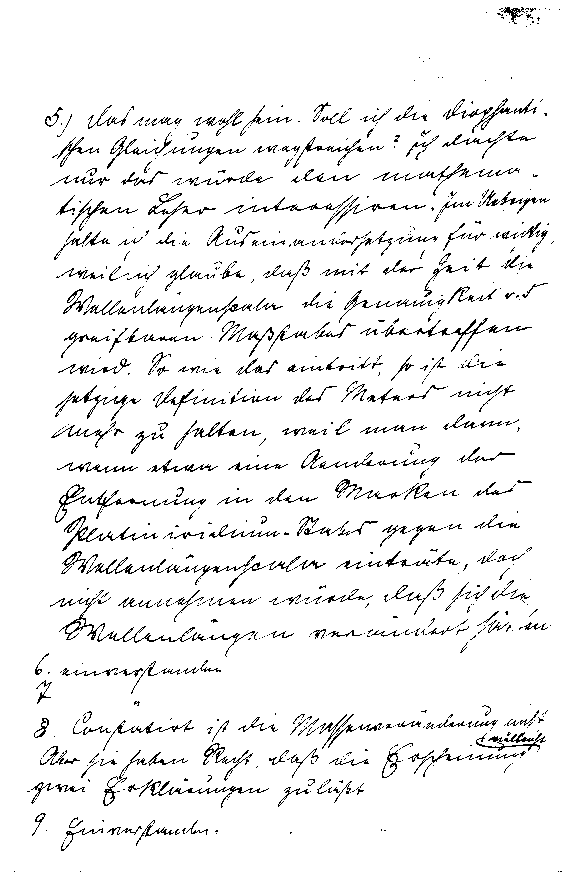 5.) Das mag wohl sein. Soll ich die diophanti-
schen Gleichungen wegstreichen? Ich dachte
nur das würde den mathema-
tischen Leser interessiren. Im Uebrigen
halte ich die Auseinandersetzung für wichtig,
weil ich glaube, daß mit der Zeit die
Wellenlängenscala die Genauigkeit d. s
greifbaren Maßstabes übertreffen
wird. So wie das eintritt, so ist die
jetzige Definition des Meters nicht
mehr zu halten, weil man dann,
wenn etwa eine Aenderung der
Entfernung in den Marken des
Platiniridium-Stabes gegen die
Wellenlängenscala einträte, doch
nicht annehmen würde, daß sich die
Wellenlängen verändert hätten
6. einverstanden
7 "
8. Constatirt ist die Massenveränderung nicht
vielleicht
Aber sie haben Recht, daß die Erscheinung
zwei Erklärungen zuläßt
9. Einverstanden.